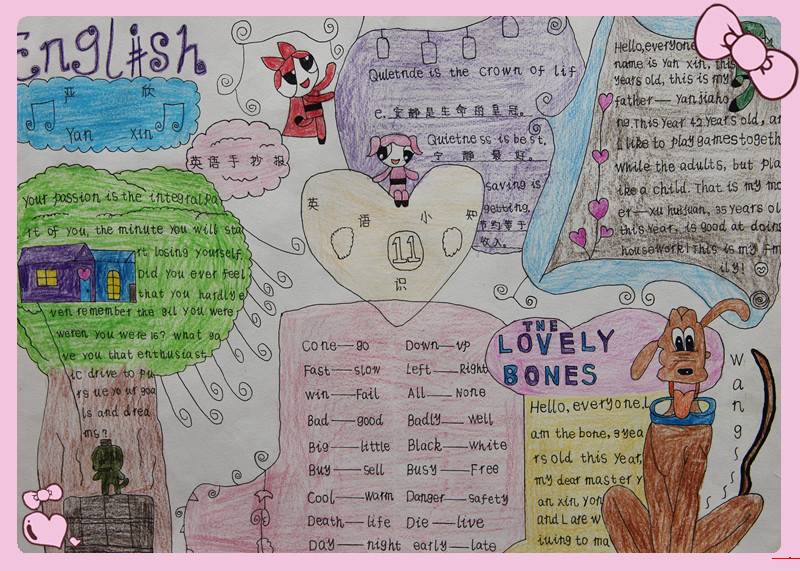 English
严 欣
Yan xin
英语手抄报
Quietnde is the crown of lif
e. 安静是生命的皇冠。
Quietness is best,
宁 静 最 好。
saving is
getting.
节约等于
收入。
英 语 小 知
11
识
Hello, everyone
name is Yan xin, this
years old, this is my
father—Yanjiaho
ng. This year 42 years old, an
d like to play games togeth
while the adults, but pla
ike a child. That is my mo
er—xu huijuan, 35 years ol
this year, is good at doing
housework! This is my fam
ily!
your passion is the integral pa
rt of you, the minute you will sta
rt losing yourself.
Did you ever feel
that you hardly e
ven remember the gil you were
weren you were 16? what ga
ve you that enthusiast
ic drive to pu
rs ue yo ur goa
ls and drea
ms?
Cone—go Down—up
Fast—slow Left—Right
win—Fail All—None
Bad—good Badly—well
Big—little Black—white
Buy—sell Busy—Free
Cool—warm Danger—safety
Death—life Die—live
Day—night early—late
THE
LOVELY
BONES
Hello, everyone, I
am the bone, 3 yea
rs old this year,
my dear master y
an xin, yon
and I, are w
iuing to ma
wang